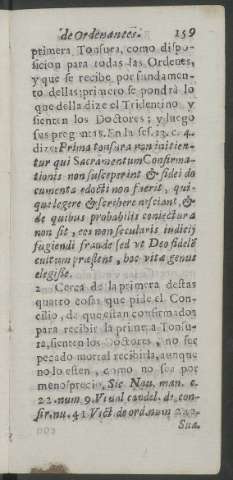 de Ordenantes. 159
primera Tonsura, como dispo-
sicion para todas las Ordenes,
y que se recibe por fundamento
dellas: primero se pondrà lo
que della dize el Tridentino y
sienten los Doctores; y luego
sus preguntas. En la ses. 23. c. 4.
dize: Prima tonsura non initien-
tur qui Sacramentum Confirma-
tionis non susceperint & fidei do
cumenta edocti non fuerit, qui-
que legere & screbere nesciant, &
de quibus probabilis coniectura
non sit, eos non secularis indicij
fugiendi fraude sed vt Deo fidelẽ
cultum præstent, hoc vitæ genus
elegisse.
2 Cerca de la primera destas
quatro cosas que pide el Con-
cilio, de que estan confirmados
para recibir la primera Tonsu-
ra, sienten los Doctores, no ser
pecado mortal recibirla, aunque
no lo esten, como no sea por
menosprecio, Sic Nau. man. c.
22. num 9. Viual candel. de con-
fir. nu. 41 Vict de ord. num
Sua.